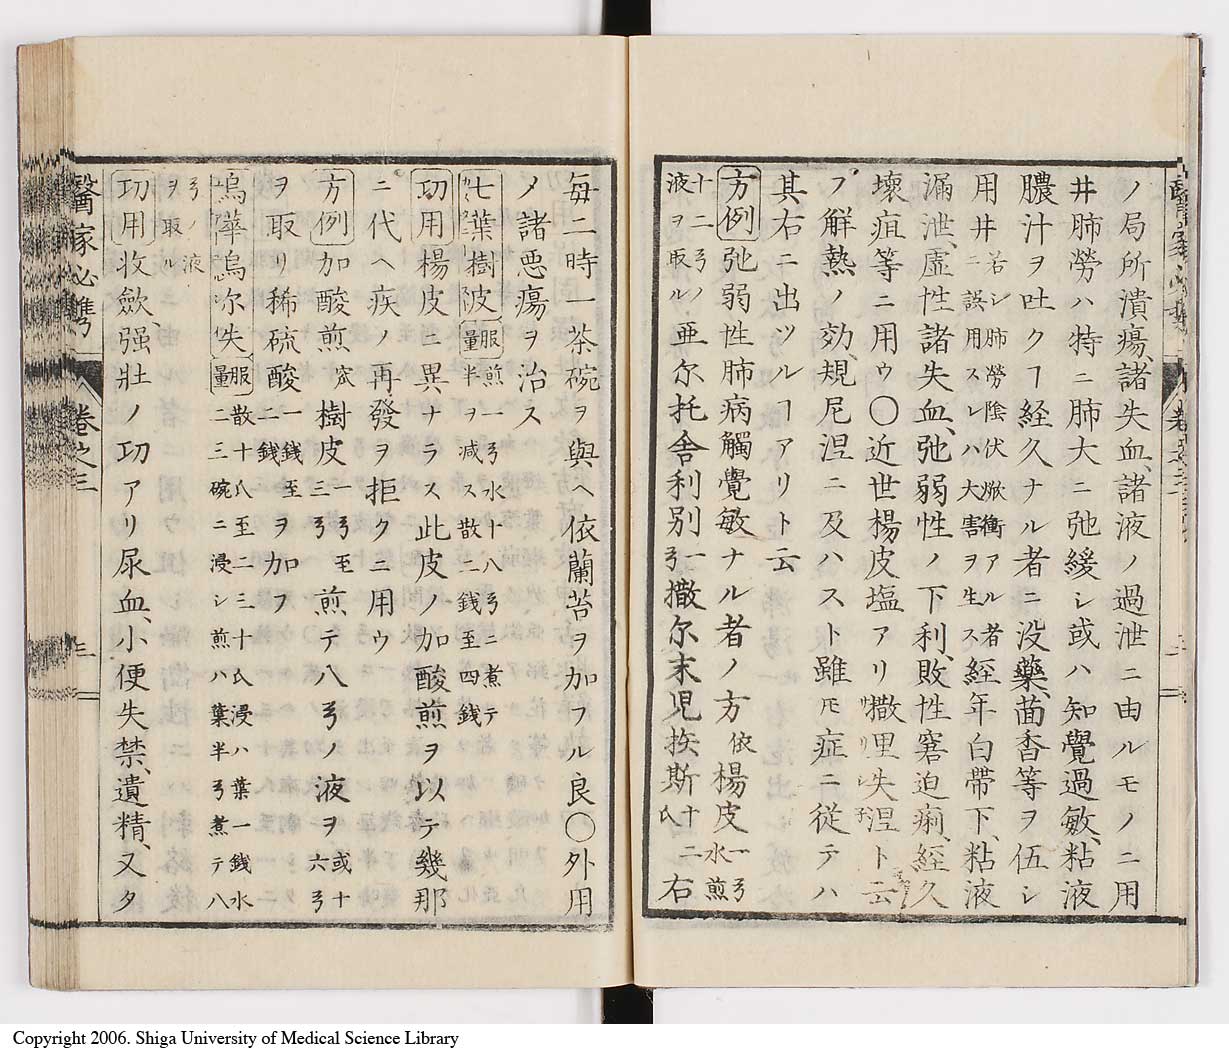 ノ局所潰瘍、諸失血、諸液ノ過泄ニ由ルモノニ用
井肺勞ハ特ニ肺大ニ弛緩シ或ハ知覺過敏、粘液
膿汁ヲ吐クヿ経久ナル者ニ没藥、茴香等ヲ伍シ
用井若シ肺勞陰伏焮衝アル者ニ誤用スレハ大害ヲ生ス経年白帶下、粘液
漏泄、虚性諸失血、弛弱性ノ下利、敗性窘迫痢、経久
壊疽等ニ用ウ〇近世楊皮塩アリ撒里失涅ト云
フ解熱ノ効、規尼涅ニ及ハスト雖モ症ニ従テハ
其右ニ出ツルヿアリト云
方例 弛弱性肺病觸覺敏ナル者ノ方 依楊皮一弓水煎
十二弓ノ液ヲ取ル 亜尔托舎利別一弓 撒尔末児挨斯十二氏 右
毎二時一茶碗ヲ與ヘ依蘭苔ヲ加フル良〇外用
ノ諸悪瘍ヲ治ス
七葉樹皮 服量 煎一弓水十八弓ニ煮テ半ヲ減ス散二銭至四銭
功用 楊皮ニ異ナラス此皮ノ加酸煎ヲ以テ幾那
ニ代ヘ疾ノ再發ヲ拒クニ用ウ
方例 加酸煎 樹皮一弓至三弓 煎テ八弓ノ液ヲ或十六弓
ヲ取リ稀硫酸一銭至二銭ヲ加フ
烏華烏尓失 服量 散十氏至二三十氏浸ハ葉一銭水二三碗ニ浸シ煎ハ葉半弓煮テ八
弓ノ液ヲ取ル
功用 收斂强壯ノ功アリ尿血、小便失禁、遺精、又タ
醫家必携 卷之三 三